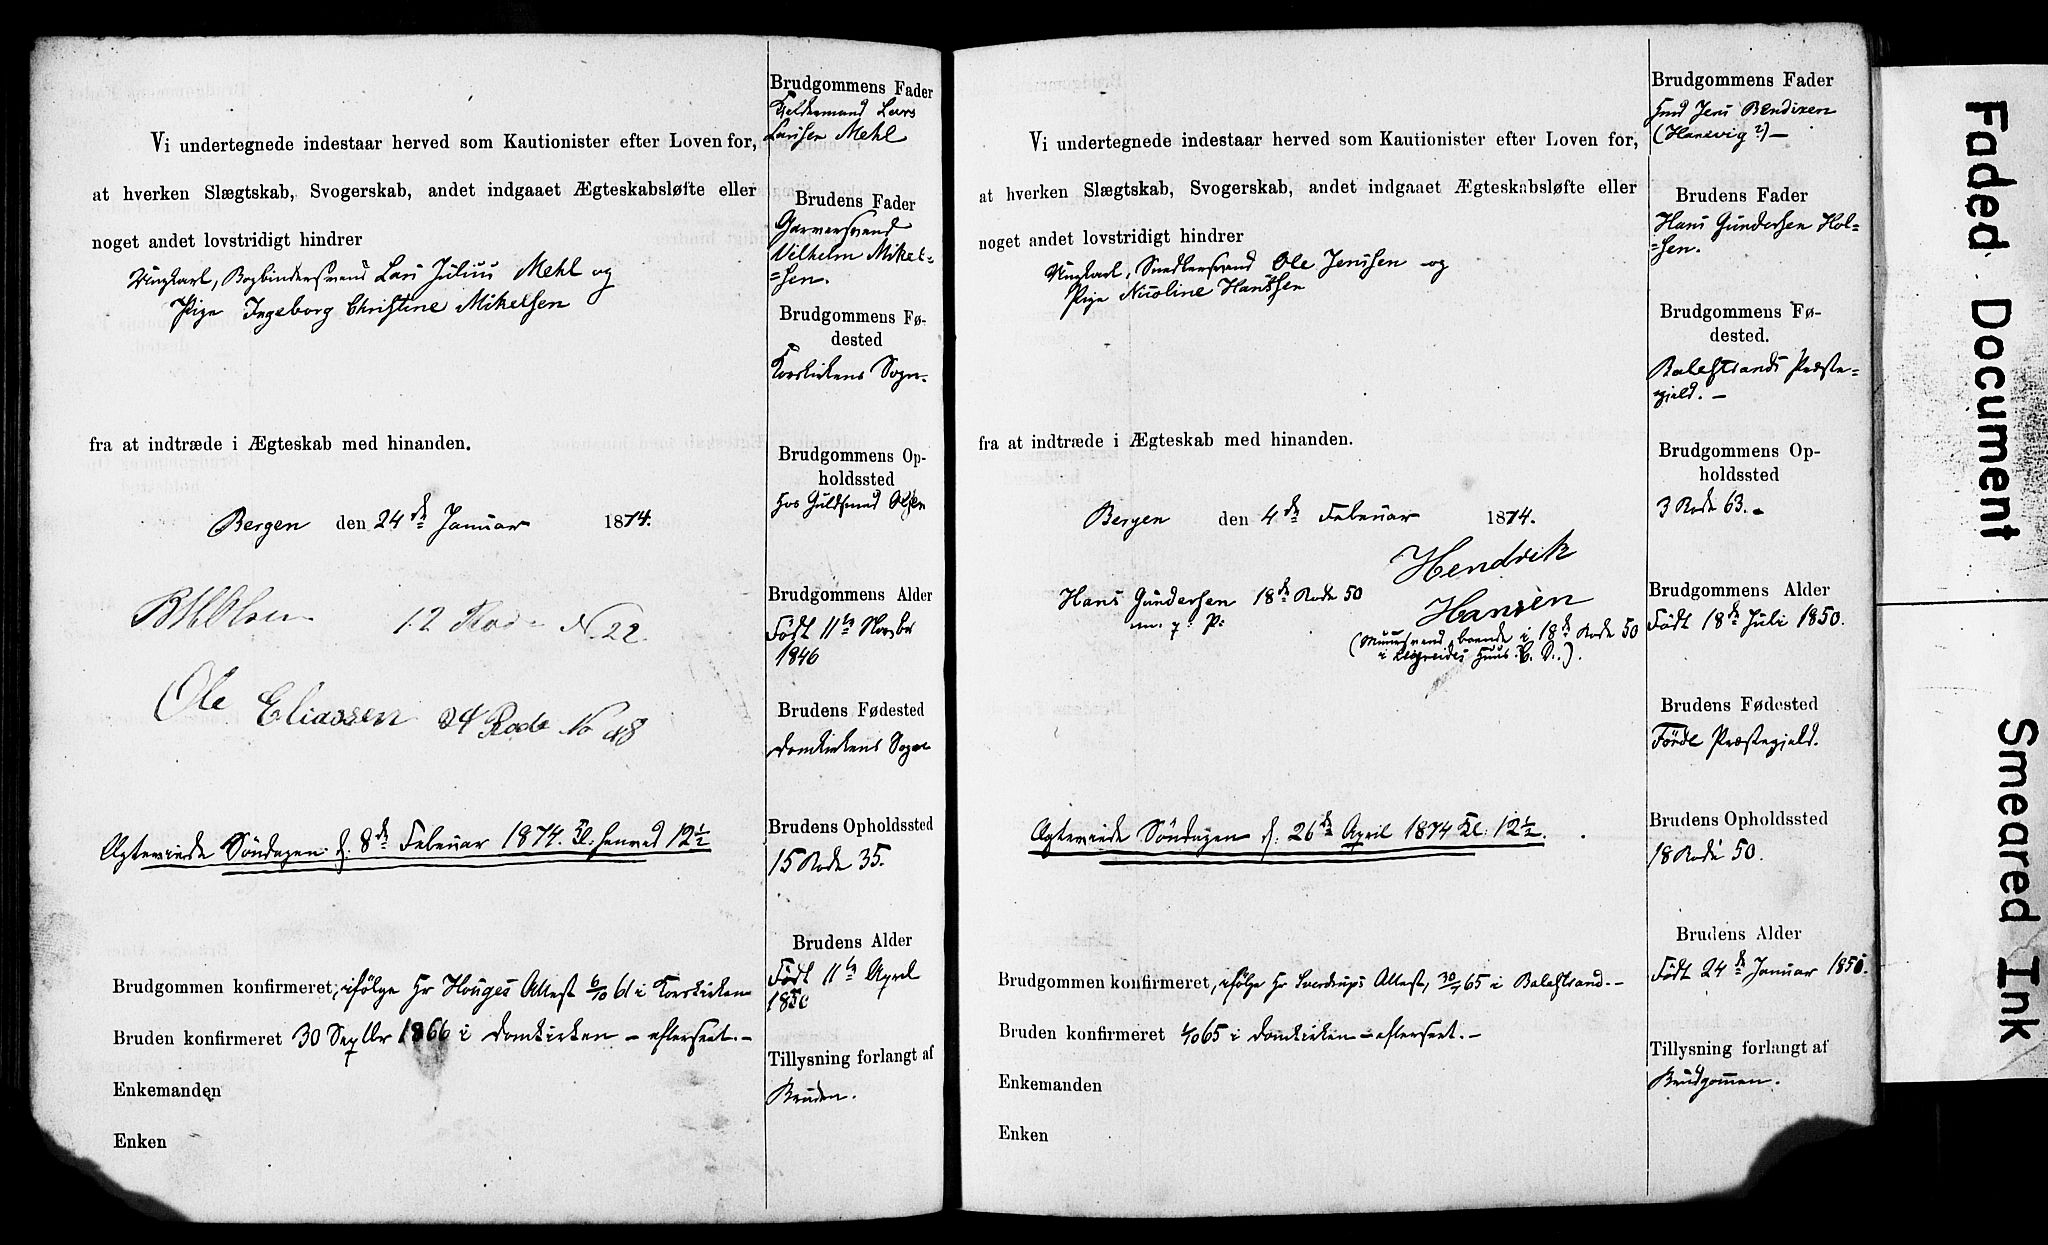 Vi undertegnede indestaar herved som Kautionister efter Loven for,
at hverken Slægtskab, Svogerskab, andet indgaaet Ægteskabsløfte eller
noget andet lovstridigt hindrer
Ungkarl, Bogbindersvend Lars Julius Mehl og
Pige Ingeborg Christine Mikelsen
fra at indtræde i Ægteskab med hinanden.
Bergen den 24de Januar 1874.
12 Rode N. 22.
Ole Eliassen 24 Rode No 48
Agteviede Søndagen d. 8de Februar 1874. Kl. 12½
Brudgommen konfirmeret, ifølge Hr Houges Attest 6/10 61 i Korskirken
Bruden konfirmeret 30 Septbr 1866 i Domkirken – efterseet. –
Enkemanden
Enken
Brudgommens Fader
Lars
Larsen Mehl
Brudens Fader
Garversvend
Vilhelm Mikel=
=sen.
Brudgommens Fø-
dested
Korskirkens Sogn.
Brudgommens Op-
holdssted
hos Guldsmed Olsen
Brudgommens Alder
Født 11te Novbr
1846
Brudens Fødested
Domkirkens Sogn
Brudens Opholdssted
15 Rode 35.
Brudens Alder
Født 11te April
1850
Tillysning forlangt af
Bruden.
Vi undertegnede indestaar herved som Kautionister efter Loven for,
at hverken Slægtskab, Svogerskab, andet indgaaet Ægteskabsløfte eller
noget andet lovstridigt hindrer
Ungkarl, Snedkersvend Ole Jenssen og
Pige Nicoline Hanssen
fra at indtræde i Ægteskab med hinanden.
Bergen den 4de Februar 1874.
Hendrik
Hans Gundersen 18de Rode 50
Hansen
m. p. P:
(Muursvend, boende i 18de Rode 50
i Huus.)
Agteviede Søndagen d. 26de April 1874 Kl. 12½.
Brudgommen konfirmeret, ifølge Hr Sverdrups Attest, 30/7 65 i Balestrand. –
Bruden konfirmeret 1/10 65 i Domkirken – efterseet. –
Enkemanden
Enken
Brudgommens Fader
Jens Bendixen
(Hanevig?) –
Brudens Fader
Hans Gundersen Hol=
=sen.
Brudgommens Fø-
dested.
Balestrands Præste=
gjeld. –
Brudgommens Op-
holdssted
3 Rode 63. –
Brudgommens Alder
Født 18de Juli 1850.
Brudens Fødested
Førde Præstegjeld.
Brudens Opholdssted
18 Rode 50.
Brudens Alder
Født 24de Januar 1850.
Tillysning forlangt af
Brudgommen.
Faded Document
Smeared Ink